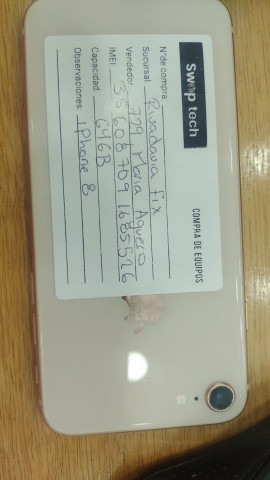 Swap tech
COMPRA DE EQUIPOS
N° de compra:
Sucursal: Rivadavia Fix
Vendedor: 729 Maria Aguero
IMEI: 356087091685526
Capacidad: 64GB
Observaciones: IPhone 8